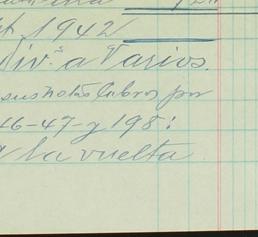 1942
Div.ª a Varios.
sus notas libros por
46-47-y 198:
a la vuelta